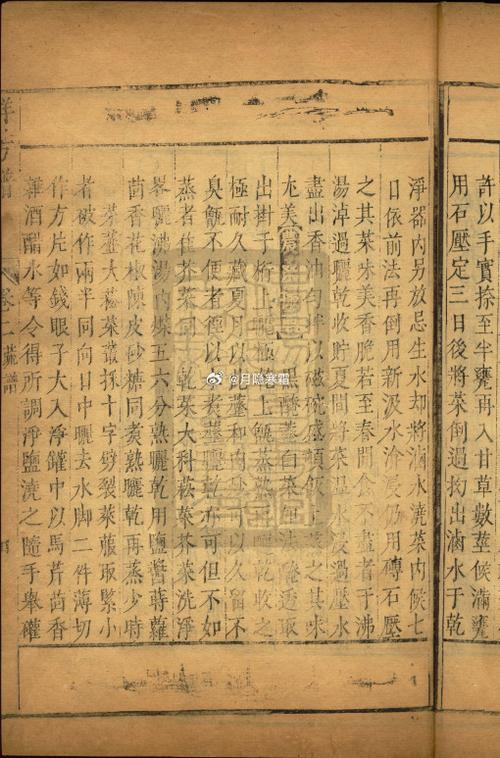 許以手實捺至半甕再入甘草數莖候滿甕
用石壓定三日後將菜倒過抝出滷水于乾
淨器內另放忌生水却將滷水澆菜內候七
日依前法再倒用新汲水渰浸仍用磚石壓
之其菜味美香脆若至春間食不盡者于沸
湯淖過曬乾收貯夏間將菜温水浸過壓水
盡出香油匀拌以磁碗盛頓飯上蒸之其味
尤美
黑醃虀白菜如法醃透取
出掛于桁上曬極上甑蒸熟再曬乾收之
極耐久藏夏月以此虀和肉炒可以久留不
臭甑不便者徑以水煮虀曬亦可但不如
蒸者佳芥菜同 乾菜大科菘菜芥菜洗淨
畧曬沸湯內煠五六分熟曬乾用鹽醬蒔蘿
茴香花椒陳皮砂糖同煮熟曬乾再蒸少時
芥虀大菘菜叢採十字劈裂萊菔取緊小
者破作兩半同向日中曬去水脚二件薄切
作方片如錢眼子大入淨罐中以馬芹茴香
雜酒醋水等令得所調淨鹽澆之隨手舉罐
卷二 蔬譜
@月隐寒霜